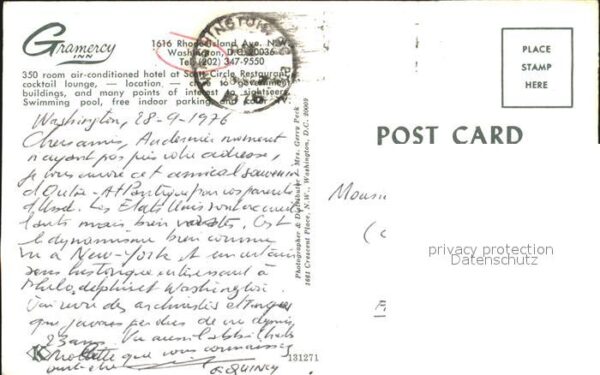 Gramercy
INN
1616 Rhode Island Ave. N.W.
Washington, D.C. 20036
Tel: (202) 347-9550
350 room air-conditioned hotel at Scott Circle Restaurant,
cocktail lounge, — location, — to government
buildings, and many points of interest to sightseers.
Swimming pool, free indoor parking and color
WASHINGTON, D.C.
PLACE
STAMP
HERE
POST CARD
Washington, 28-9-1976
Chers amis, Au dernier moment
n'ayant pas pris votre adresse,
je vous envoie cet amical souvenir
d'Outre-Atlantique pour vos parents
d'Ussel. Les Etats Unis sont
mais bien vastes. C'est
le dynamisme bien connu
vu à New-York et un certain
sens historique intéressant à
Philadelphie et Washington.
J'ai revu des archivistes
que j'avais perdus de vue depuis
23 ans. Vu aussi l'abbé Charles
Molette que vous connaissez
peut-être
G QUINCY
Photographer & Distributor Mrs. Gerry Peck
1661 Crescent Place, N.W., Washington, D.C. 20009
K
131271
Mous
privacy protection
Datenschutz